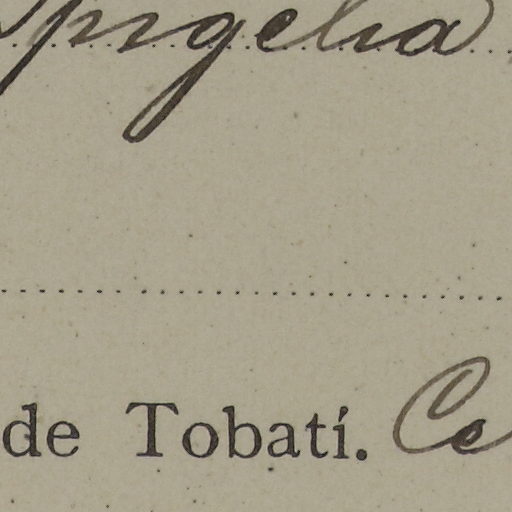 Spigelia
de Tobatí. Ce